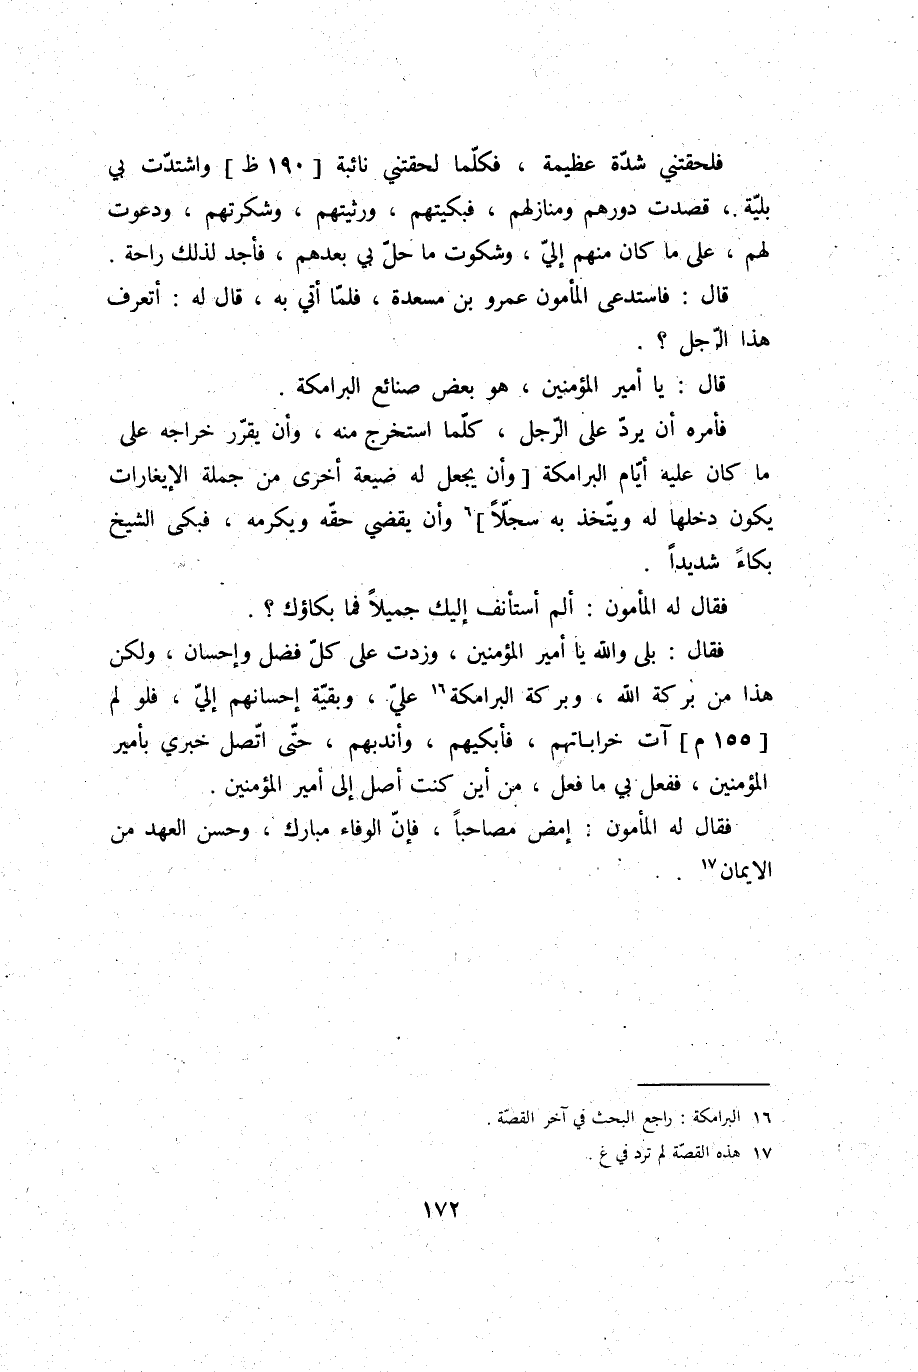 فلحقتني شدّة عظيمة ، فكلّما لحقتني نائبة [ ١٩٠ ظ ] واشتدّت بي
بليّة ، قصدت دورهم ومنازلهم ، فبكيتهم ، ورثيتهم ، وشكرتهم ، ودعوت
لهم ، على ما كان منهم إليّ ، وشكوت ما حلّ بي بعدهم ، فأجد لذلك راحة .
قال : فاستدعى المأمون عمرو بن مسعدة ، فلمّا أتي به ، قال له : أتعرف
هذا الرّجل ؟ .
قال : يا أمير المؤمنين ، هو بعض صنائع البرامكة .
فأمره أن يردّ على الرّجل ، كلّما استخرج منه ، وأن يقرّر خراجه على
ما كان عليه أيّام البرامكة [ وأن يجعل له ضيعة أخرى من جملة الإيغارات
يكون دخلها له ويتّخذ به سجلّاً ]٦ وأن يقضي حقّه ويكرمه ، فبكى الشيخ
بكاءً شديداً .
فقال له المأمون : ألم أستأنف إليك جميلاً فما بكاؤك ؟ .
فقال : بلى والله يا أمير المؤمنين ، وزدت على كلّ فضل وإحسان ، ولكن
هذا من بركة الله ، وبركة البرامكة١٦ عليّ ، وبقيّة إحسانهم إليّ ، فلو لم
[ ١٥٥ م ] آت خراباتهم ، فأبكيهم ، وأندبهم ، حتّى اتّصل خبري بأمير
المؤمنين ، ففعل بي ما فعل ، من أين كنت أصل إلى أمير المؤمنين .
فقال له المأمون : إمض مصاحباً ، فإنّ الوفاء مبارك ، وحسن العهد من
الايمان١٧ .
١٦ البرامكة : راجع البحث في آخر القصّة .
١٧ هذه القصّة لم ترد في غ .
١٧٢